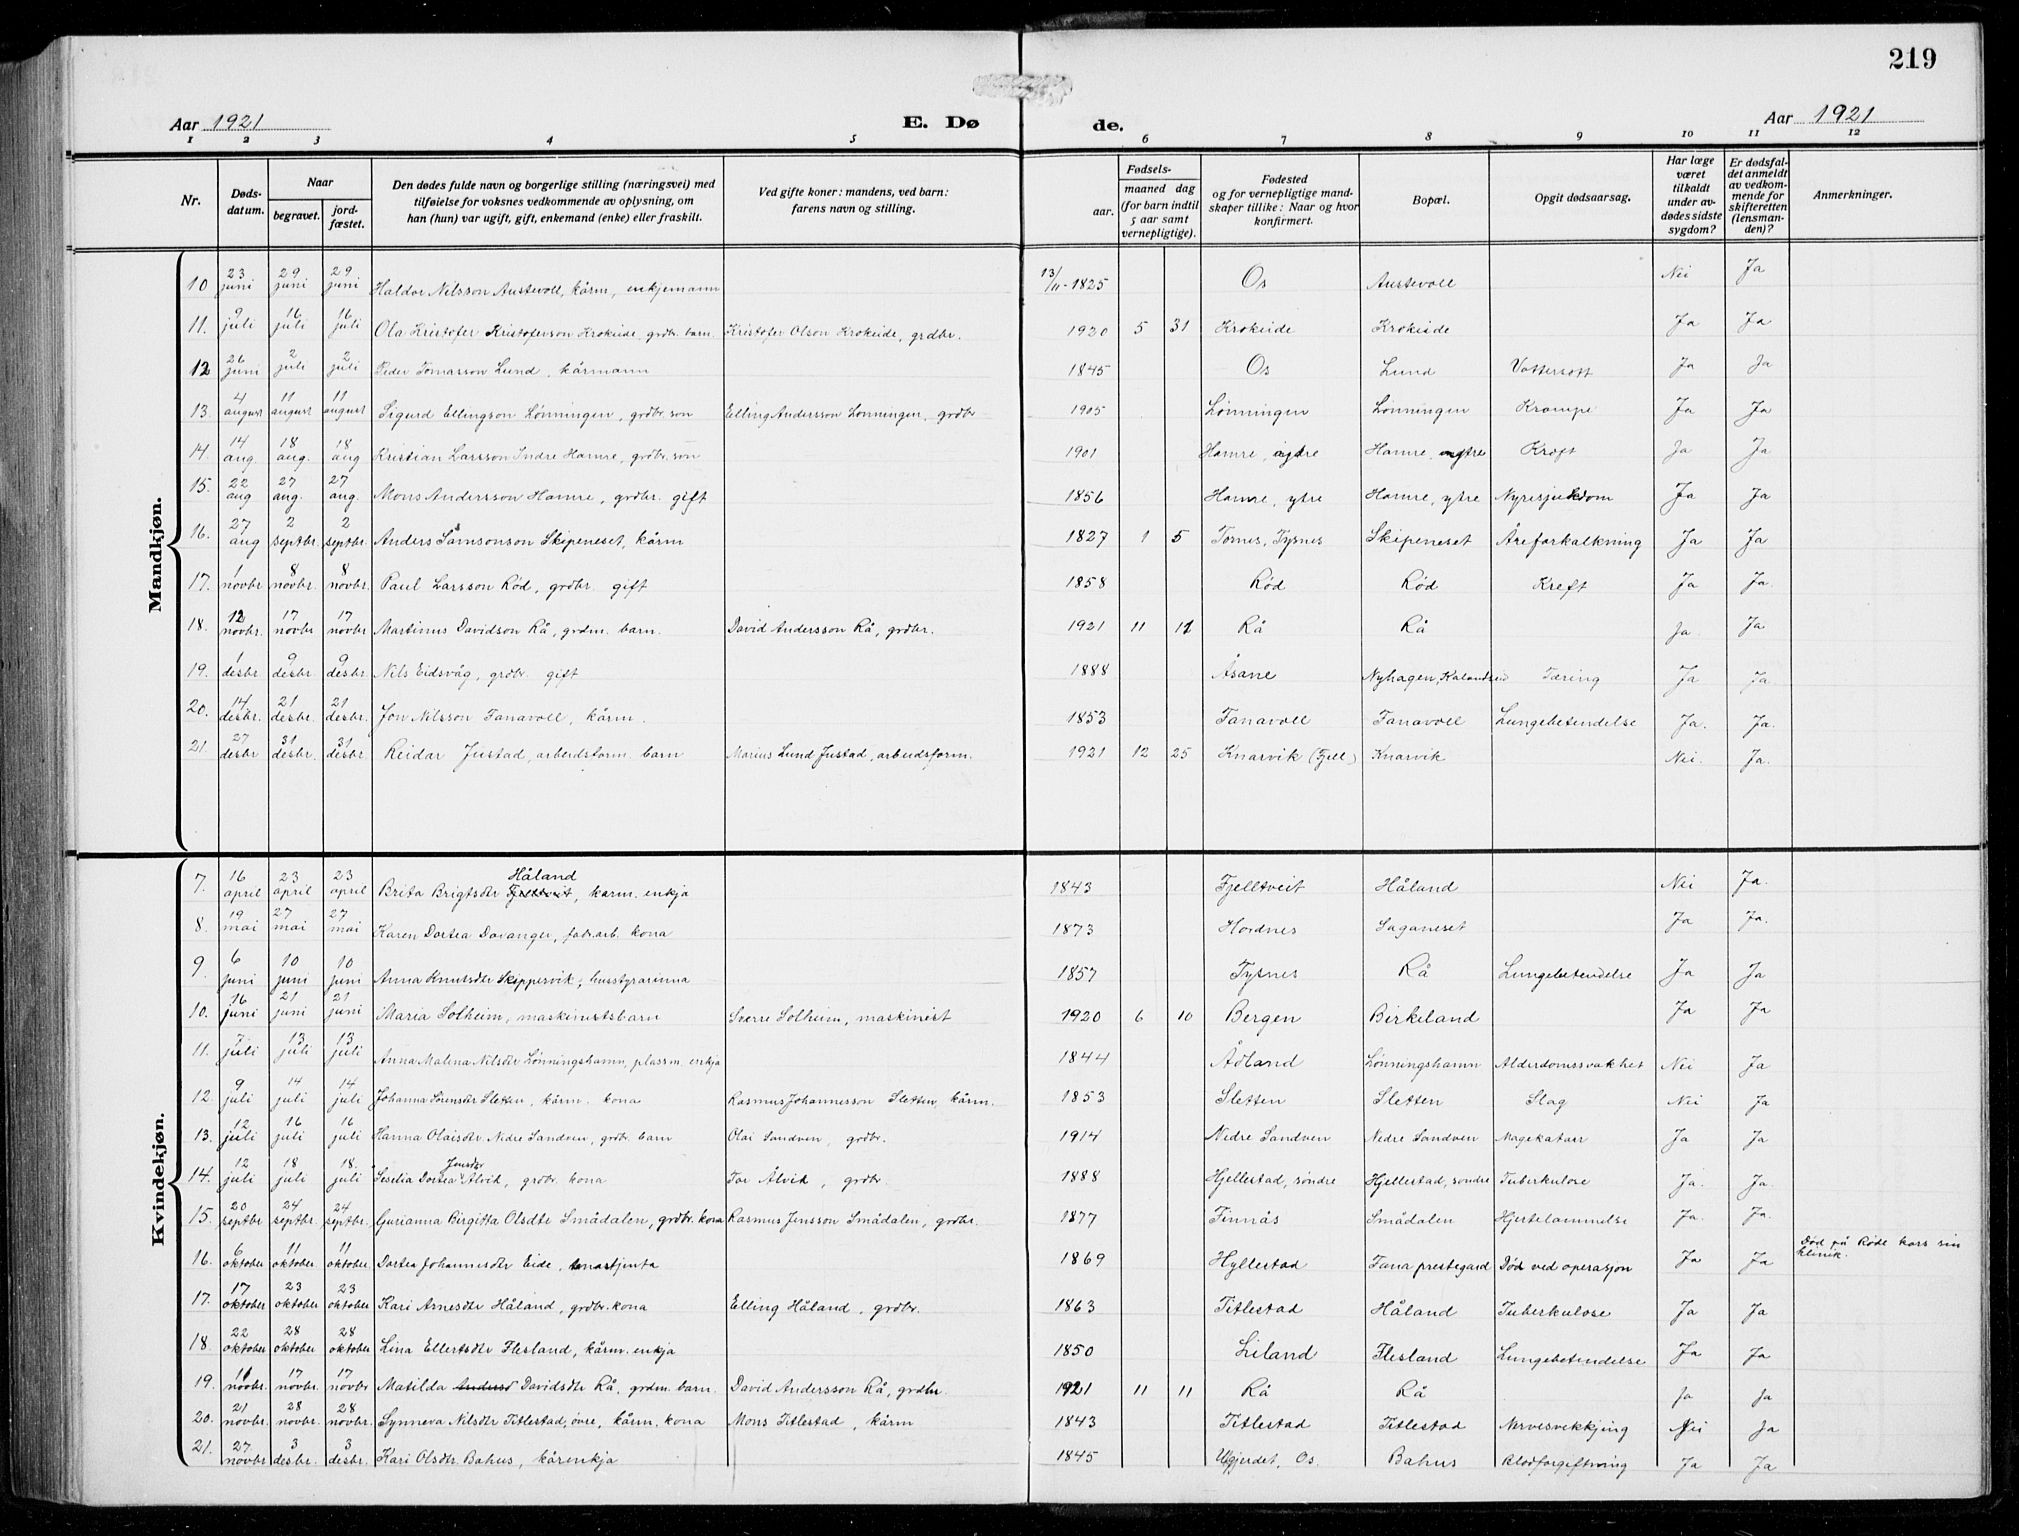 219
Aar 1921 E. Dø de. Aar 1921
1 2 3 4 5 6 7 8 9 10 11 12
Nr. Døds-datum. Naar begravet. jord-fæstet. Den dødes fulde navn og borgerlige stilling (næringsvei) med tilføielse for voksnes vedkommende av oplysning, om han (hun) var ugift, gift, enkemand (enke) eller fraskilt. Ved gifte koner: mandens, ved barn: farens navn og stilling. Fødsels- aar. maaned dag (for barn indtil 5 aar samt vernepligtige). Fødested og for vernepligtige mand-skaper tillike: Naar og hvor konfirmert. Bopæl. Opgit dødsaarsag. Har læge været tilkaldt under av-dødes sidste sygdom? Er dødsfal-det anmeldt av vedkom-mende for skifteretten (lensman-den)? Anmerkninger.
Mandkjøn.
10 23 juni 29 juni 29 juni Haldor Nilsson Austevoll, kårm, enkjemann 13/11-1825 Os Austevoll Nei Ja
11. 9 juli 16 juli 16 juli Ola Kristofer Kristoferson Krokeide, grdbr. barn. Kristofer Olson Krokeide, grdbr. 1920 5 31 Krokeide Krokeide Ja Ja
12 26 juni 2 juli 2 juli Peder Tomasson Lund, kårmann 1845 Os Lund Vottersott Ja Ja
13. 4 august 11 august 11 august Sigurd Ellingson Lønningen, grdbr son Elling Andersson Lønningen, grdbr 1905 Lønningen Lønningen Krampe Ja Ja
14. 14 aug. 18 aug. 18 aug Kristian Larsson Indre Hamre, grdbr. son 1901 Hamre, ytre Hamre, ytre Kræft Ja Ja
15. 22 aug 27 aug. 27 aug. Mons Andersson Hamre, grdbr. gift 1856 Hamre, ytre Hamre, ytre Nyresjukdom Ja Ja
16. 27 aug 2 septbr. 2 septbr. Anders Samsonson Skipeneset, kårm 1827 1 5 Tornes, Tysnes Skipeneset Åreforkalkning Ja Ja
17. 1 novbr 8 novbr. 8 novbr. Paul Larsson Rød, grdbr. gift 1858 Rød Rød Kreft Ja Ja.
18. 12 novbr. 17 novbr 17 novbr Martinus Davidson Rå, grdm. barn. David Andersson Rå, grdbr. 1921 11 11 Rå Rå Ja. Ja
19. 1 desbr 9 desbr. 9 desbr. Nils Eidsvåg, grdbr. gift 1888 Åsane Nyhagen, Kalandseid Tæring Ja Ja
20. 14 desbr. 21 desbr. 21 desbr. Jon Nilsson Fanavoll, kårm. 1853 Fanavoll Fanavoll Lungebetendelse Ja. Ja.
21. 27 desbr 31 desbr. 31 desbr. Reidar Justad, arbeidsform. barn Marius Lund Justad, arbeidsform. 1921 12 25 Knarvik (Fjell) Knarvik Nei. Ja.
Kvindekjøn.
7. 16 april 23 april 23 april Brita Brigtsdtr Fjelltveit Håland, karm. enkja 1843 Fjelltveit Håland Nei Ja.
8. 19 mai 27 mai 27 mai Karen Dortea Davanger, fabr.arb. kona 1873 Hordnes Saganeset Ja Ja.
9. 6 juni 10 juni 10 juni Anna Knutsdtr Skippervik, husstyrarinna 1857 Tysnes Rå Lungebetendelse Ja Ja
10. 16 juni 21 juni 21 juni Maria Solheim, maskinistsbarn Sverre Solheim, maskinist 1920 6 10 Bergen Birkeland Ja Ja
11. 7 juli 13 juli 13 juli Anna Malena Nilsdtr Lønningshamn, plassm. enkja 1844 Ådland Lønningshamn Alderdomssvakhet Nei Ja
12. 9 juli 14 juli 14 juli Johanna Sørensdtr Sletten, kårm. kona Rasmus Johannesson Sletten, kårm. 1853 Sletten Sletten Slag Nei Ja
13. 12 juli 16 juli 16 juli Hanna Olaisdtr Nedre Sandven, grdbr. barn Olai Sandven, grdbr. 1914 Nedre Sandven Nedre Sandven Magekatarr Ja Ja
14. 12 juli 18 juli 18. juli Seselia Dortea Jensdtr Ålvik, grdbr. kona Tor Ålvik, grdbr. 1888 Hjellestad, søndre Hjellestad, søndre Tuberkulose Ja. Ja.
15. 20 septbr 24 septbr. 24 septbr. Gurianna Birgitta Olsdtr Smådalen, grdbr. kona Rasmus Jensson Smådalen, grdbr. 1877 Finnås Smådalen Hjertelammelse Ja. Ja.
16. 6 oktober 11 oktober 11 oktober Dortea Johannesdtr Eide, tenestjenta 1869 Hyllestad Fana prestegard Død ved operasjon Ja Ja Død på Røde kors sin klinik.
17. 17 oktober 23 oktober 23 oktober Kari Arnesdtr Håland, grdbr. kona Elling Håland, grdbr. 1863 Titlestad Håland Tuberkulose Ja Ja
18. 22 oktober 28 oktober 28 oktober Lina Ellertsdtr Flesland, kårm. enkja 1850 Liland Flesland Lungebetendelse Ja Ja
19. 11 novbr. 17 novbr. 17 novbr Matilda Davidsdtr Rå, grdm. barn. David Andersson Rå, grdbr. 1921 11 11 Rå Rå Ja Ja
20. 21 novbr. 28 novbr. 28 novbr. Synneva Nilsdtr Titlestad, øvre, kårm. kona Mons Titlestad, kårm 1843 Titlestad Titlestad Nervesvekkjing Nei Ja
21. 27. novbr 3 desbr. 3 desbr. Kari Olsdtr. Bahus, kårenkja 1845 Os. Bahus Blodforgiftning Ja Ja